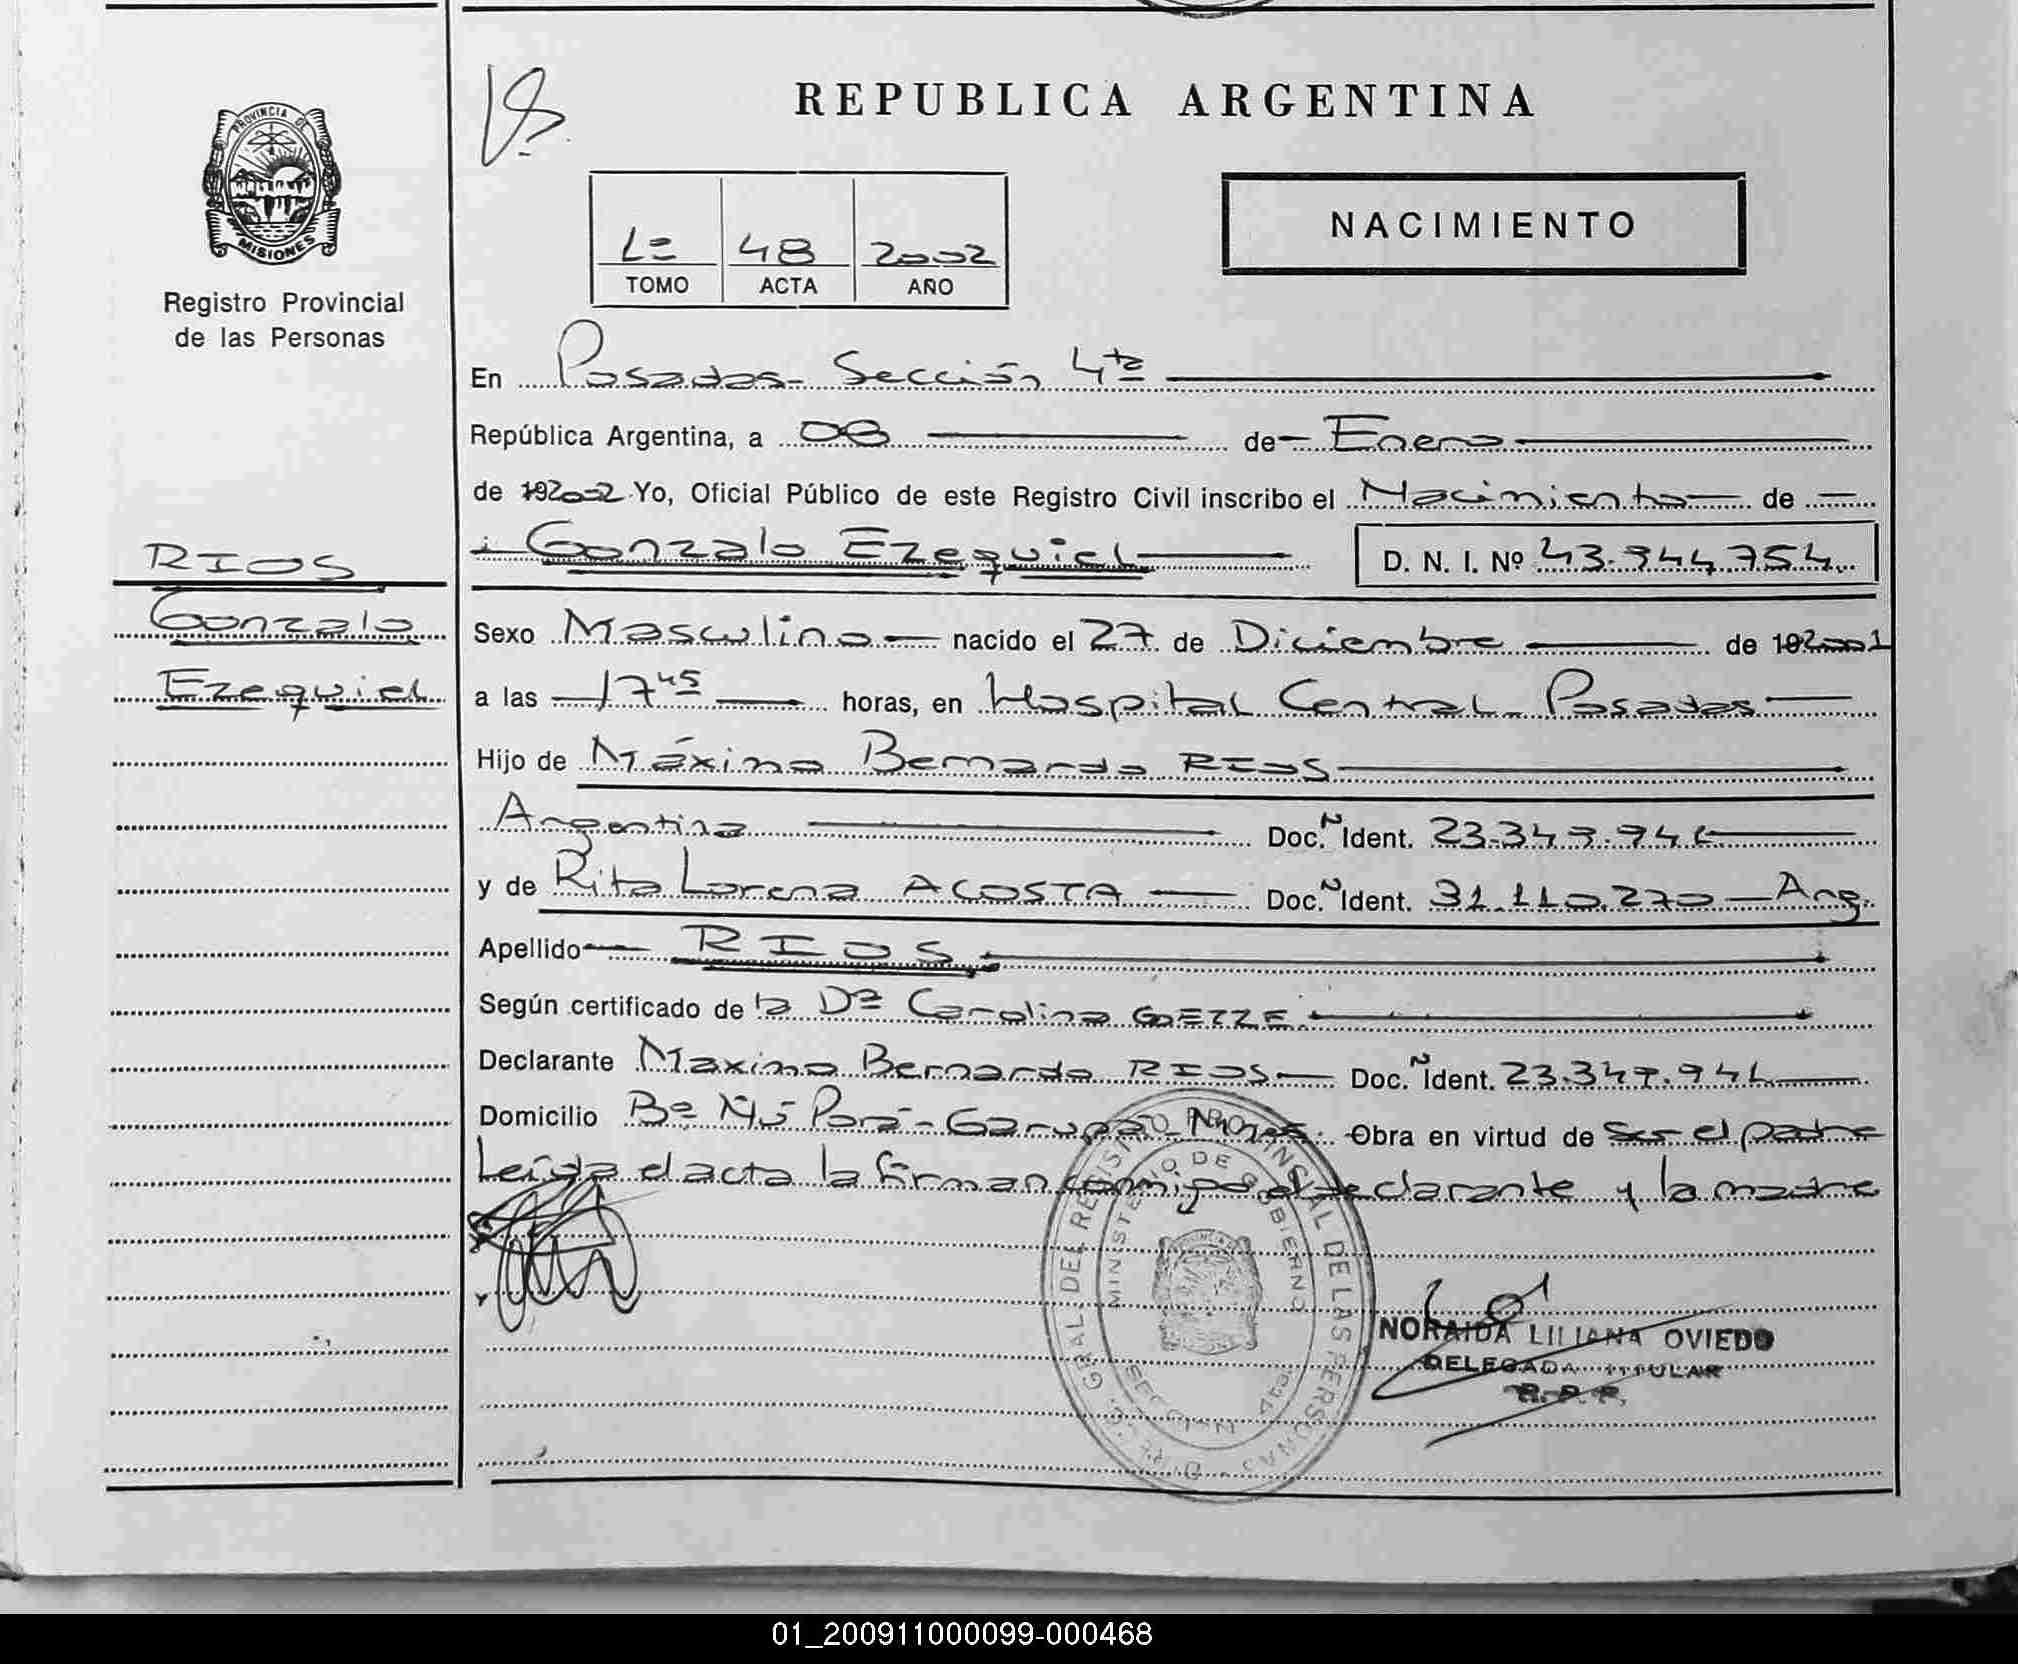 REPUBLICA ARGENTINA
PROVINCIA DE
MISIONES
Registro Provincial
de las Personas
NACIMIENTO
1º 48 2002
TOMO ACTA AÑO
En Posadas - Sección 4ta
República Argentina, a 08 de Enero
de 2002 Yo, Oficial Público de este Registro Civil inscribo el Nacimiento de
RIOS
Gonzalo
Ezequiel
Gonzalo Ezequiel D. N. I. Nº 43.944.754
Sexo Masculino nacido el 27 de Diciembre de 2001
a las 17 45 horas, en Hospital Central - Posadas
Hijo de Máximo Bernardo RIOS
Argentina Doc. Ident.
y de Rita Lorena ACOSTA Doc. Ident. 31.110.270 - Arg.
Apellido RIOS
Según certificado de la Dra Carolina GOETZE
Declarante Maximo Bernardo RIOS Doc. Ident.
Domicilio Bº Ñú Porá - Garupá - Obra en virtud de ser el padre
Leída el acta la firman conmigo el declarante y la madre
DIR. GRAL. DEL REGISTRO PROVINCIAL DE LAS PERSONAS
MINISTERIO DE GOBIERNO
SECCION 4ta.
NORAIDA LILIANA OVIEDO
DELEGADA TITULAR
R. P. P.
01_200911000099-000468